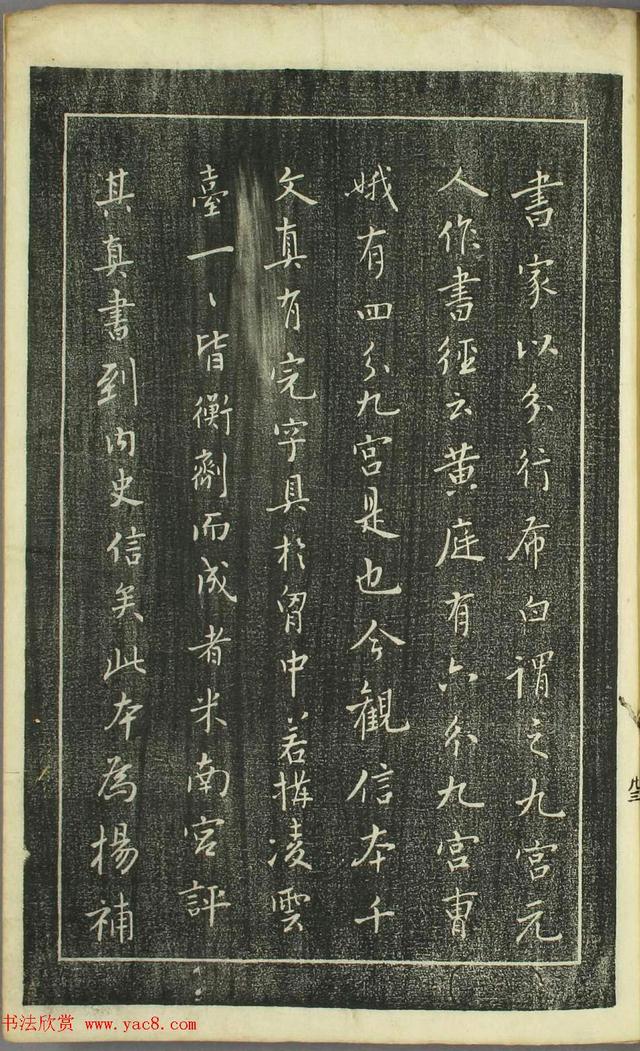 書家以分行布白謂之九宮元
人作書徑云黃庭有六分九宮曹
娥有四分九宮是也今觀信本千
文真有完字具於胷中若構凌雲
臺一〻皆衡劑而成者米南宮評
其真書到內史信矣此本為楊補
八三
书法欣赏 www.yac8.com